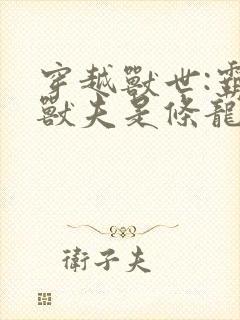 穿越獸世:霸
獸夫是條龍
衛子夫